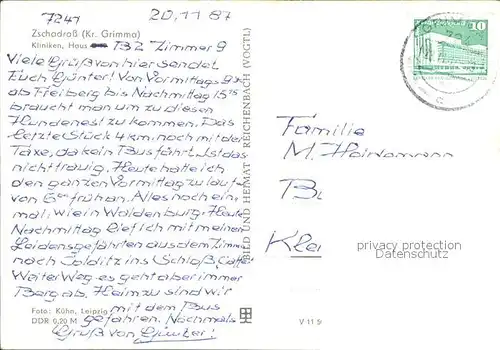 7241
20.11 87
Zschadraß (Kr. Grimma)
Kliniken, Haus B2 Zimmer 9
Viele Grüß von hier sendet
Euch Günter! Von Vormittags
ab Freiberg bis Nachmittag 15 15
braucht man um zu diesen
Hundenest zu kommen. Das
letzte Stück 4 km noch mit der
Taxe, da kein Bus fährt. Ist das
nicht traurig. Heute hatte ich
den ganzen Vormittag zu laufen
von 6 früh an. Alles noch ein-
mal, wie in Waldenburg. Heute
Nachmittag lief ich mit meinen
Leidensgefährten aus dem Zimmer
nach Colditz ins Schloß,
Weiter Weg es geht aber immer
Bergab. Heim zu sind wir
mit dem Bus
gefahren. Nochmals
Gruß von Günter!
Foto: Kühn, Leipzig
DDR 0,20 M
BILD UND HEIMAT REICHENBACH (VOGTL)
V 11 9
10
Familie
M.
B
Klei
privacy protection
Datenschutz